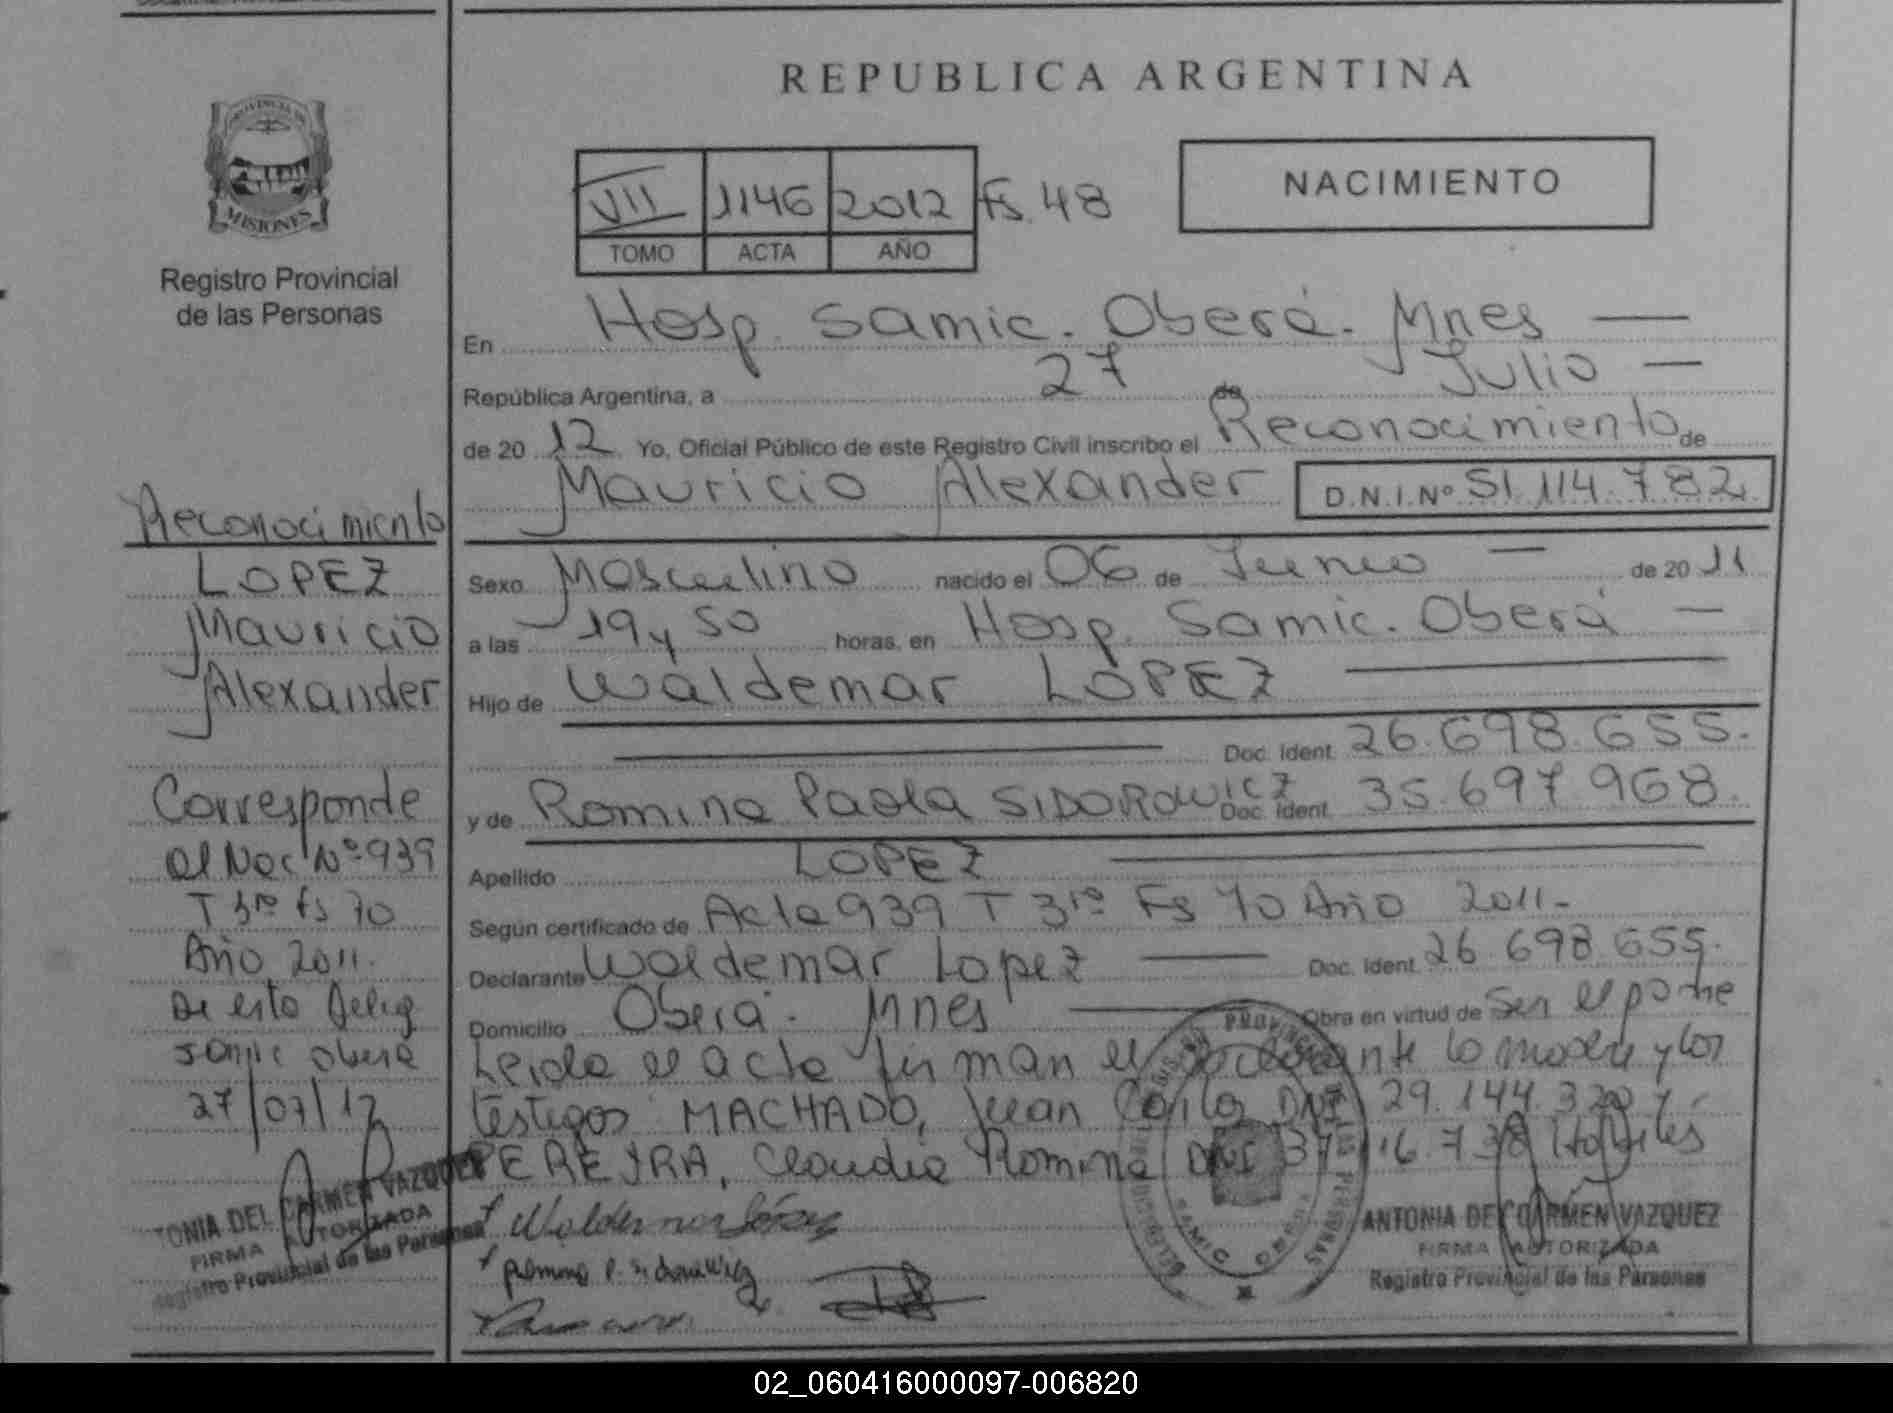 REPUBLICA ARGENTINA
PROVINCIA DE
MISIONES
Registro Provincial
de las Personas
VIII 1146 2012 Fs. 48
TOMO ACTA AÑO
NACIMIENTO
En Hosp. Samic. Oberá. Mnes
República Argentina, a 27 de Julio
de 20 12 Yo, Oficial Público de este Registro Civil inscribo el Reconocimiento de
Mauricio Alexander D.N.I.Nº 51.114.782
Sexo Masculino nacido el 06 de Junio de 20 11
a las 19 y 50 horas, en Hosp. Samic. Oberá
Hijo de Waldemar LOPEZ
Doc. Ident. 26.698.655.
y de Romina Paola SIDOROWICZ Doc. Ident. 35.697.968.
Apellido LOPEZ
Según certificado de Acta 939 T 3ro Fs 70 Año 2011-
Declarante Waldemar Lopez Doc. Ident. 26.698.655.
Domicilio Oberá. Mnes Obra en virtud de Ser el padre
Leida el acta firman el declarante la madre y los
testigos MACHADO, Juan Carlos DNI 29.144.320 y
PEREYRA, Claudia Romina DNI 16.738 Habiles
Waldemar López
Romina P. Sidorowicz
ANTONIA DEL CARMEN VAZQUEZ
FIRMA AUTORIZADA
Registro Provincial de las Personas
Reconocimiento
LOPEZ
Mauricio
Alexander
Corresponde
al Nac Nº 939
T 3ro fs 70
Año 2011.
De esta Deleg
Samic Oberá
27/07/12
TONIA DEL CARMEN VAZQUEZ
FIRMA AUTORIZADA
Registro Provincial de las Personas
02_060416000097-006820